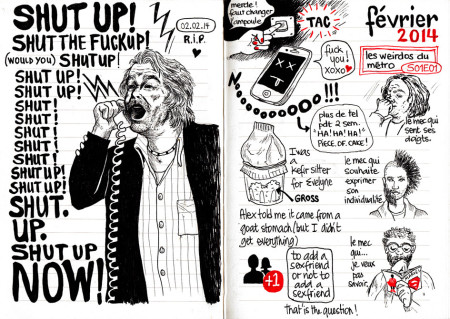 SHUT UP!
SHUT THE FUCK UP!
(WOULD YOU) SHUT UP!
SHUT UP!
SHUT UP!
SHUT!
SHUT!
SHUT!
SHUT!
SHUT!
SHUT UP!
SHUT UP!
SHUT.
UP.
SHUT UP
NOW!
02.02.14
R.i.P.
merde!
faut changer
l'ampoule
TAC
fuck
you!
xoxo
!!!
plus de tel
pdt 2 sem.
"HA! HA! HA!
PIECE OF CAKE!
I was
a
kefir sitter
for Evelyne
GROSS
Alex told me it came from a
goat stomach (but I didn't
get everything)
+1
to add a
sexfriend
or not to
add a
sexfriend
That is the question!
février
2014
les weirdos du
métro
S01E01
le mec qui
sent ses
doigts.
le mec qui
souhaite
exprimer
son
individualité.
le mec
qui...
je veux
pas
savoir.